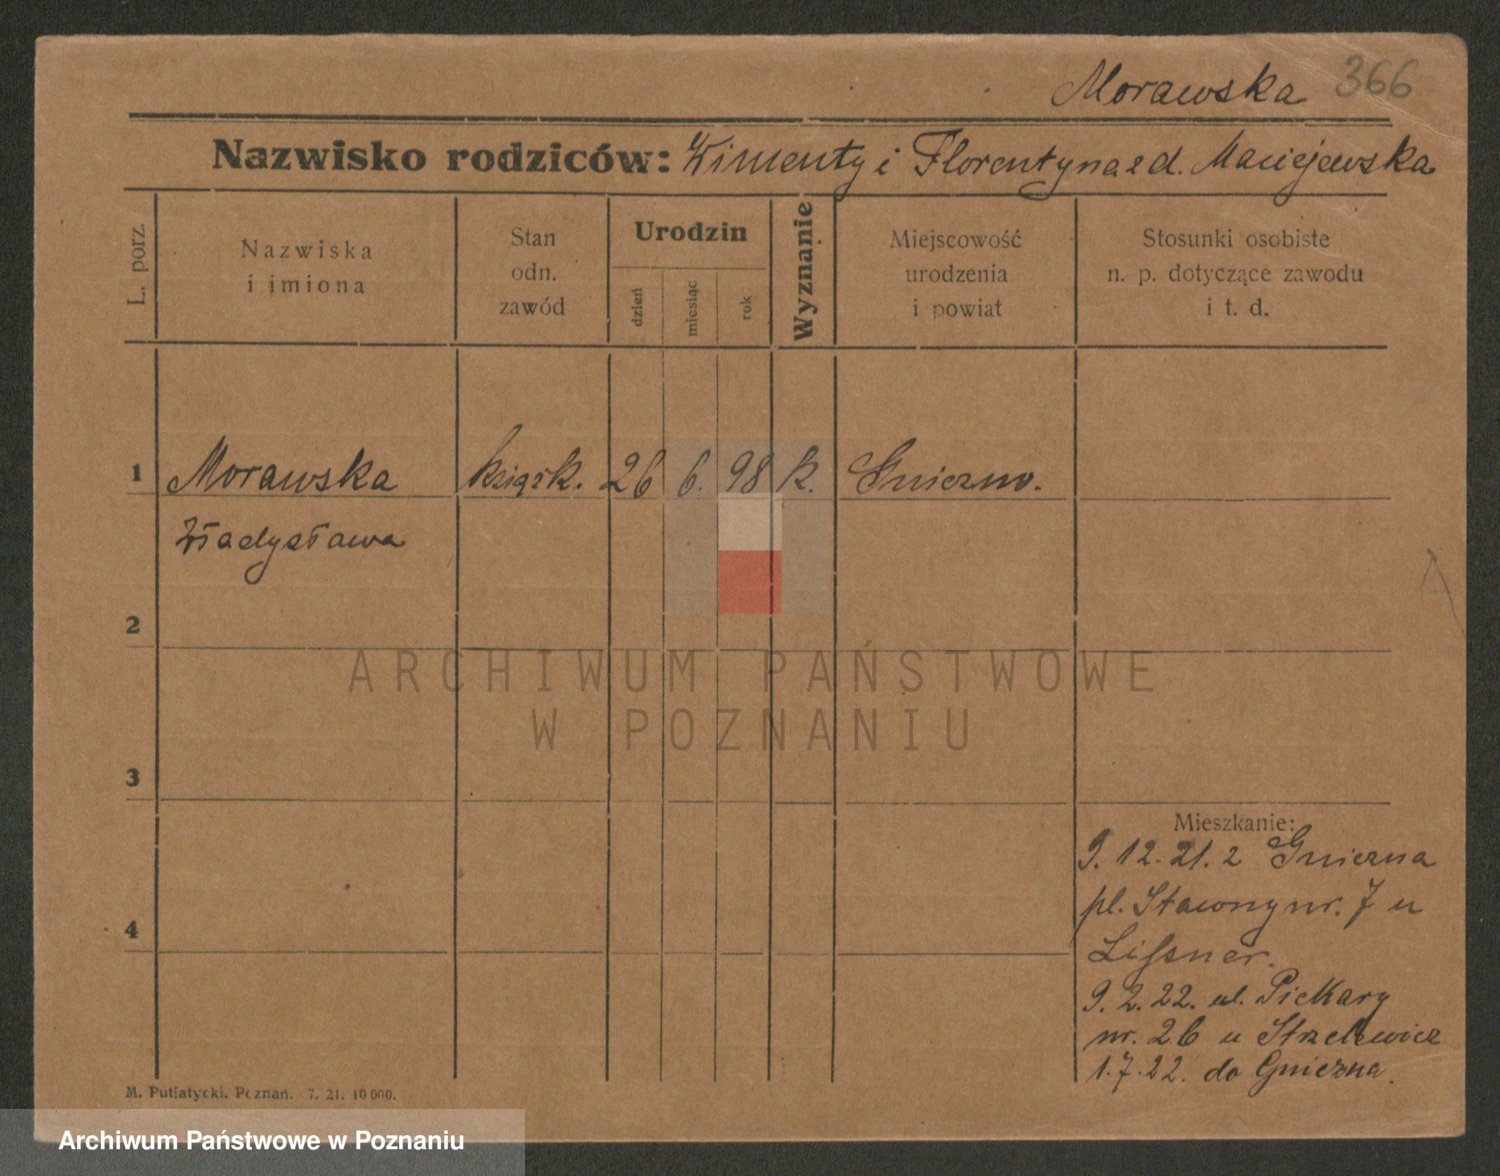 Morawska 366
Nazwisko rodziców: Wincenty i Florentyna z d. Maciejewska
L. porz.
Nazwiska
i imiona
Stan
odn.
zawód
Urodzin
dzień
miesiąc
rok
Wyznanie
Miejscowość
urodzenia
i powiat
Stosunki osobiste
n. p. dotyczące zawodu
i t. d.
1 Morawska książk. 26 6. 98 k. Gniezno.
Władysława
2
3
4
ARCHIWUM PAŃSTWOWE
W POZNANIU
Mieszkanie:
9. 12. 21. z Gniezna
pl. Stawny nr. 7 u
Lißner.
9. 2. 22. ul. Piekary
nr. 26 u Strzelewicz
1. 7. 22. do Gniezna.
M. Putiatycki. Poznań. 7. 21. 10 000.
Archiwum Państwowe w Poznaniu